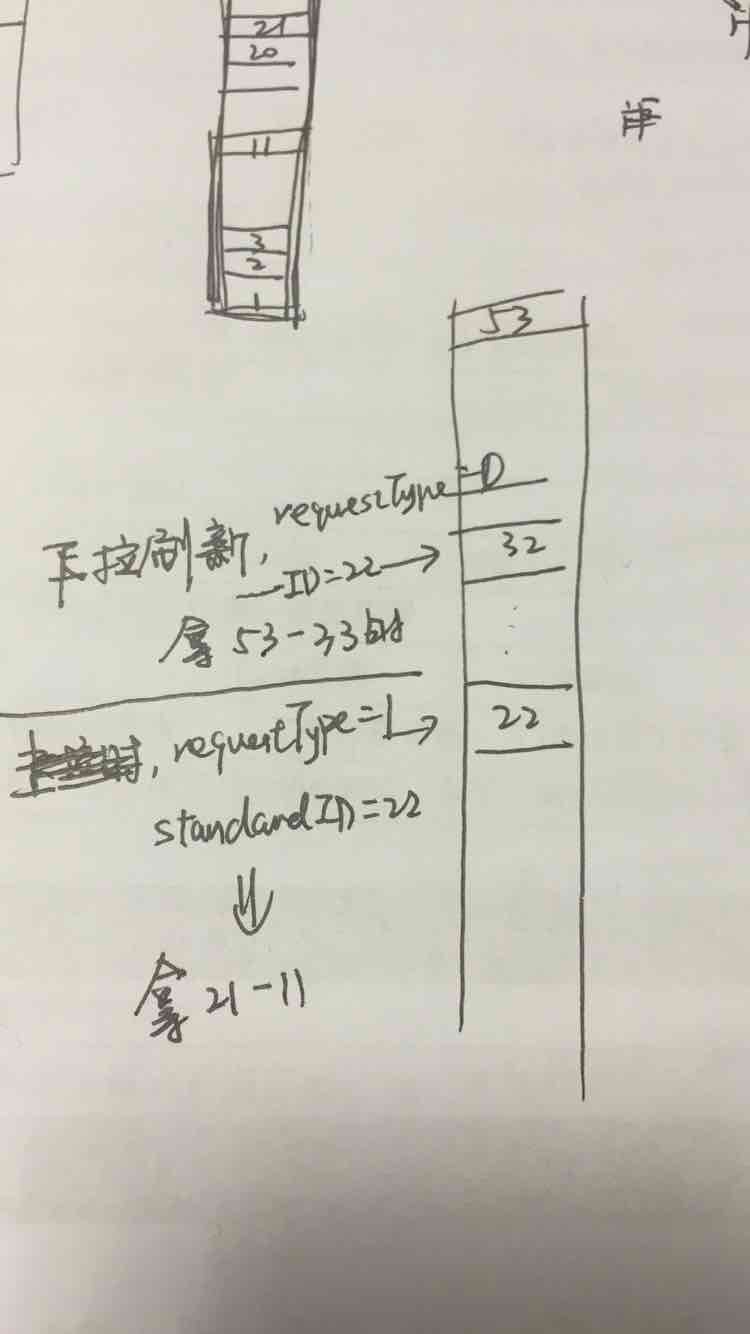 21
20
11
3
2
1
53
下拉刷新, requestType=0
ID=22→
32
拿 53-33时
requestType=1→
22
standardID=22
拿 21-11